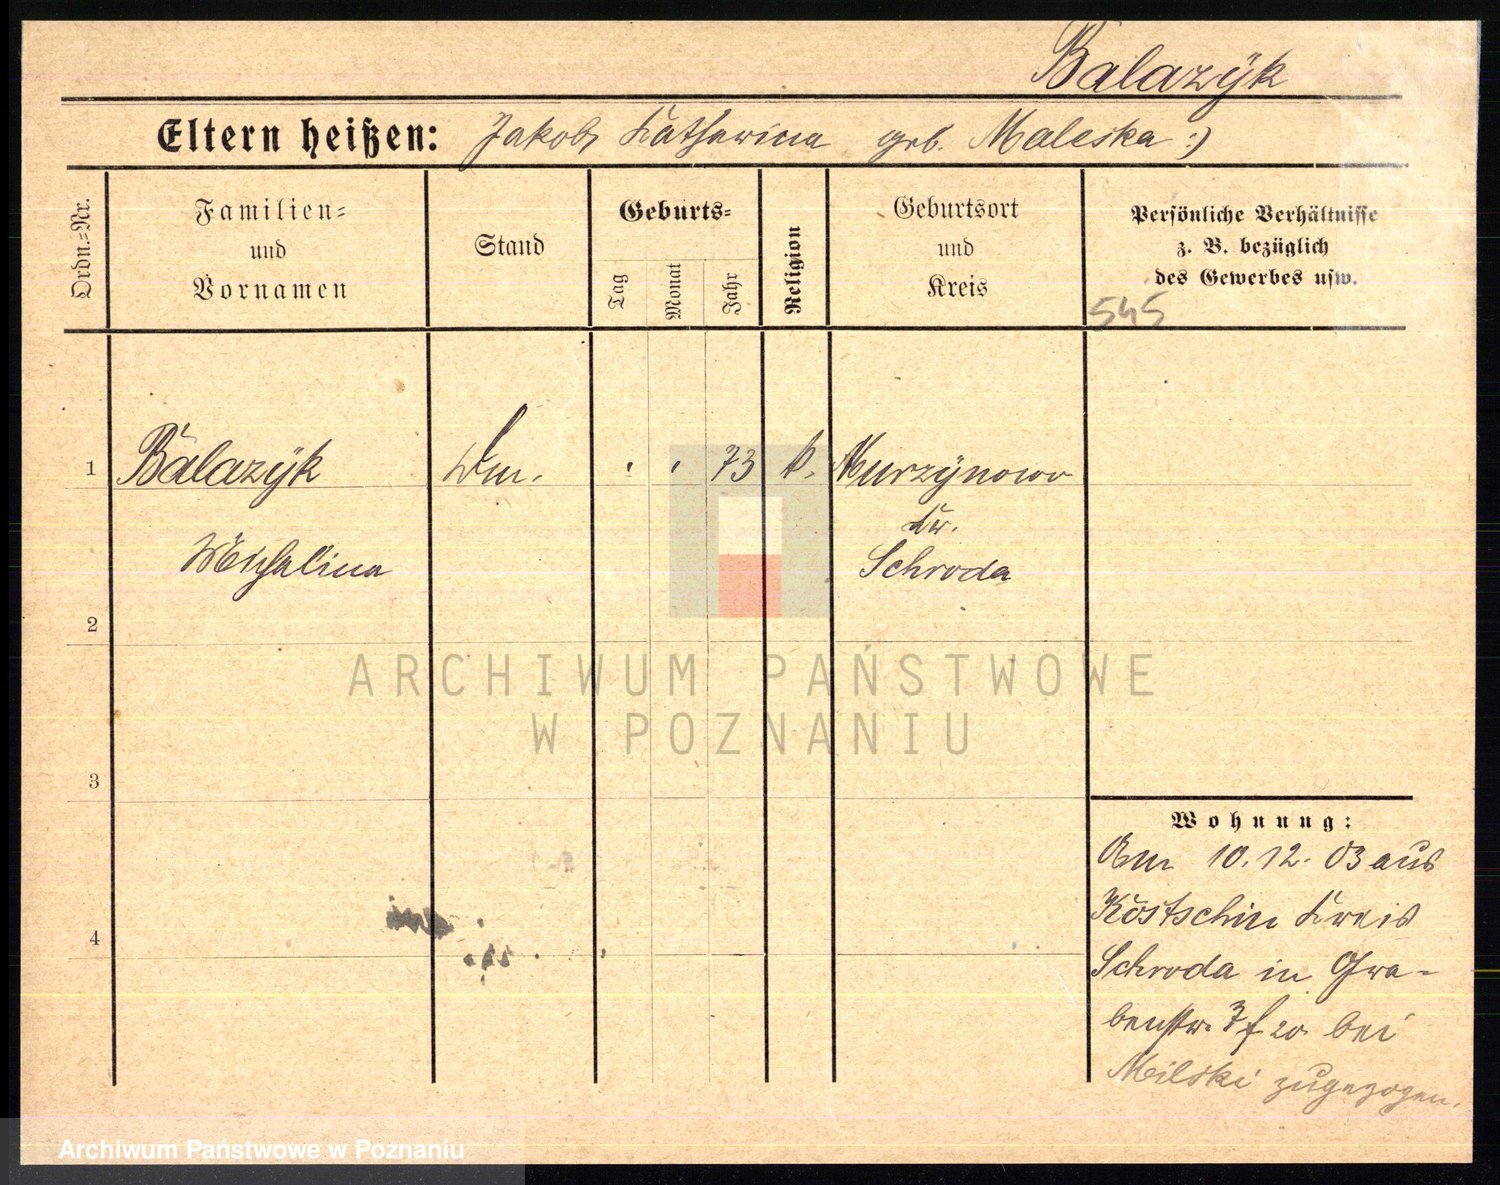 Balazÿk
Eltern heißen: Jakob, Katharina geb. Maleska :)
Ordn.=Nr.
Familien=
und
Vornamen
Stand
Geburts=
Tag
Monat
Jahr
Religion
Geburtsort
und
Kreis
Persönliche Verhältnisse
z. B. bezüglich
des Gewerbes usw.
545
1 Balazÿk 73 k. Murzÿnowo
Kr.
Michalina Schroda
2
ARCHIWUM PAŃSTWOWE
W POZNANIU
3
Wohnung:
Am 10.12.03 aus
Kostschin Kreis
4
Schroda in Gra-
benstr. bei
Milski zugezogen.
Archiwum Państwowe w Poznaniu